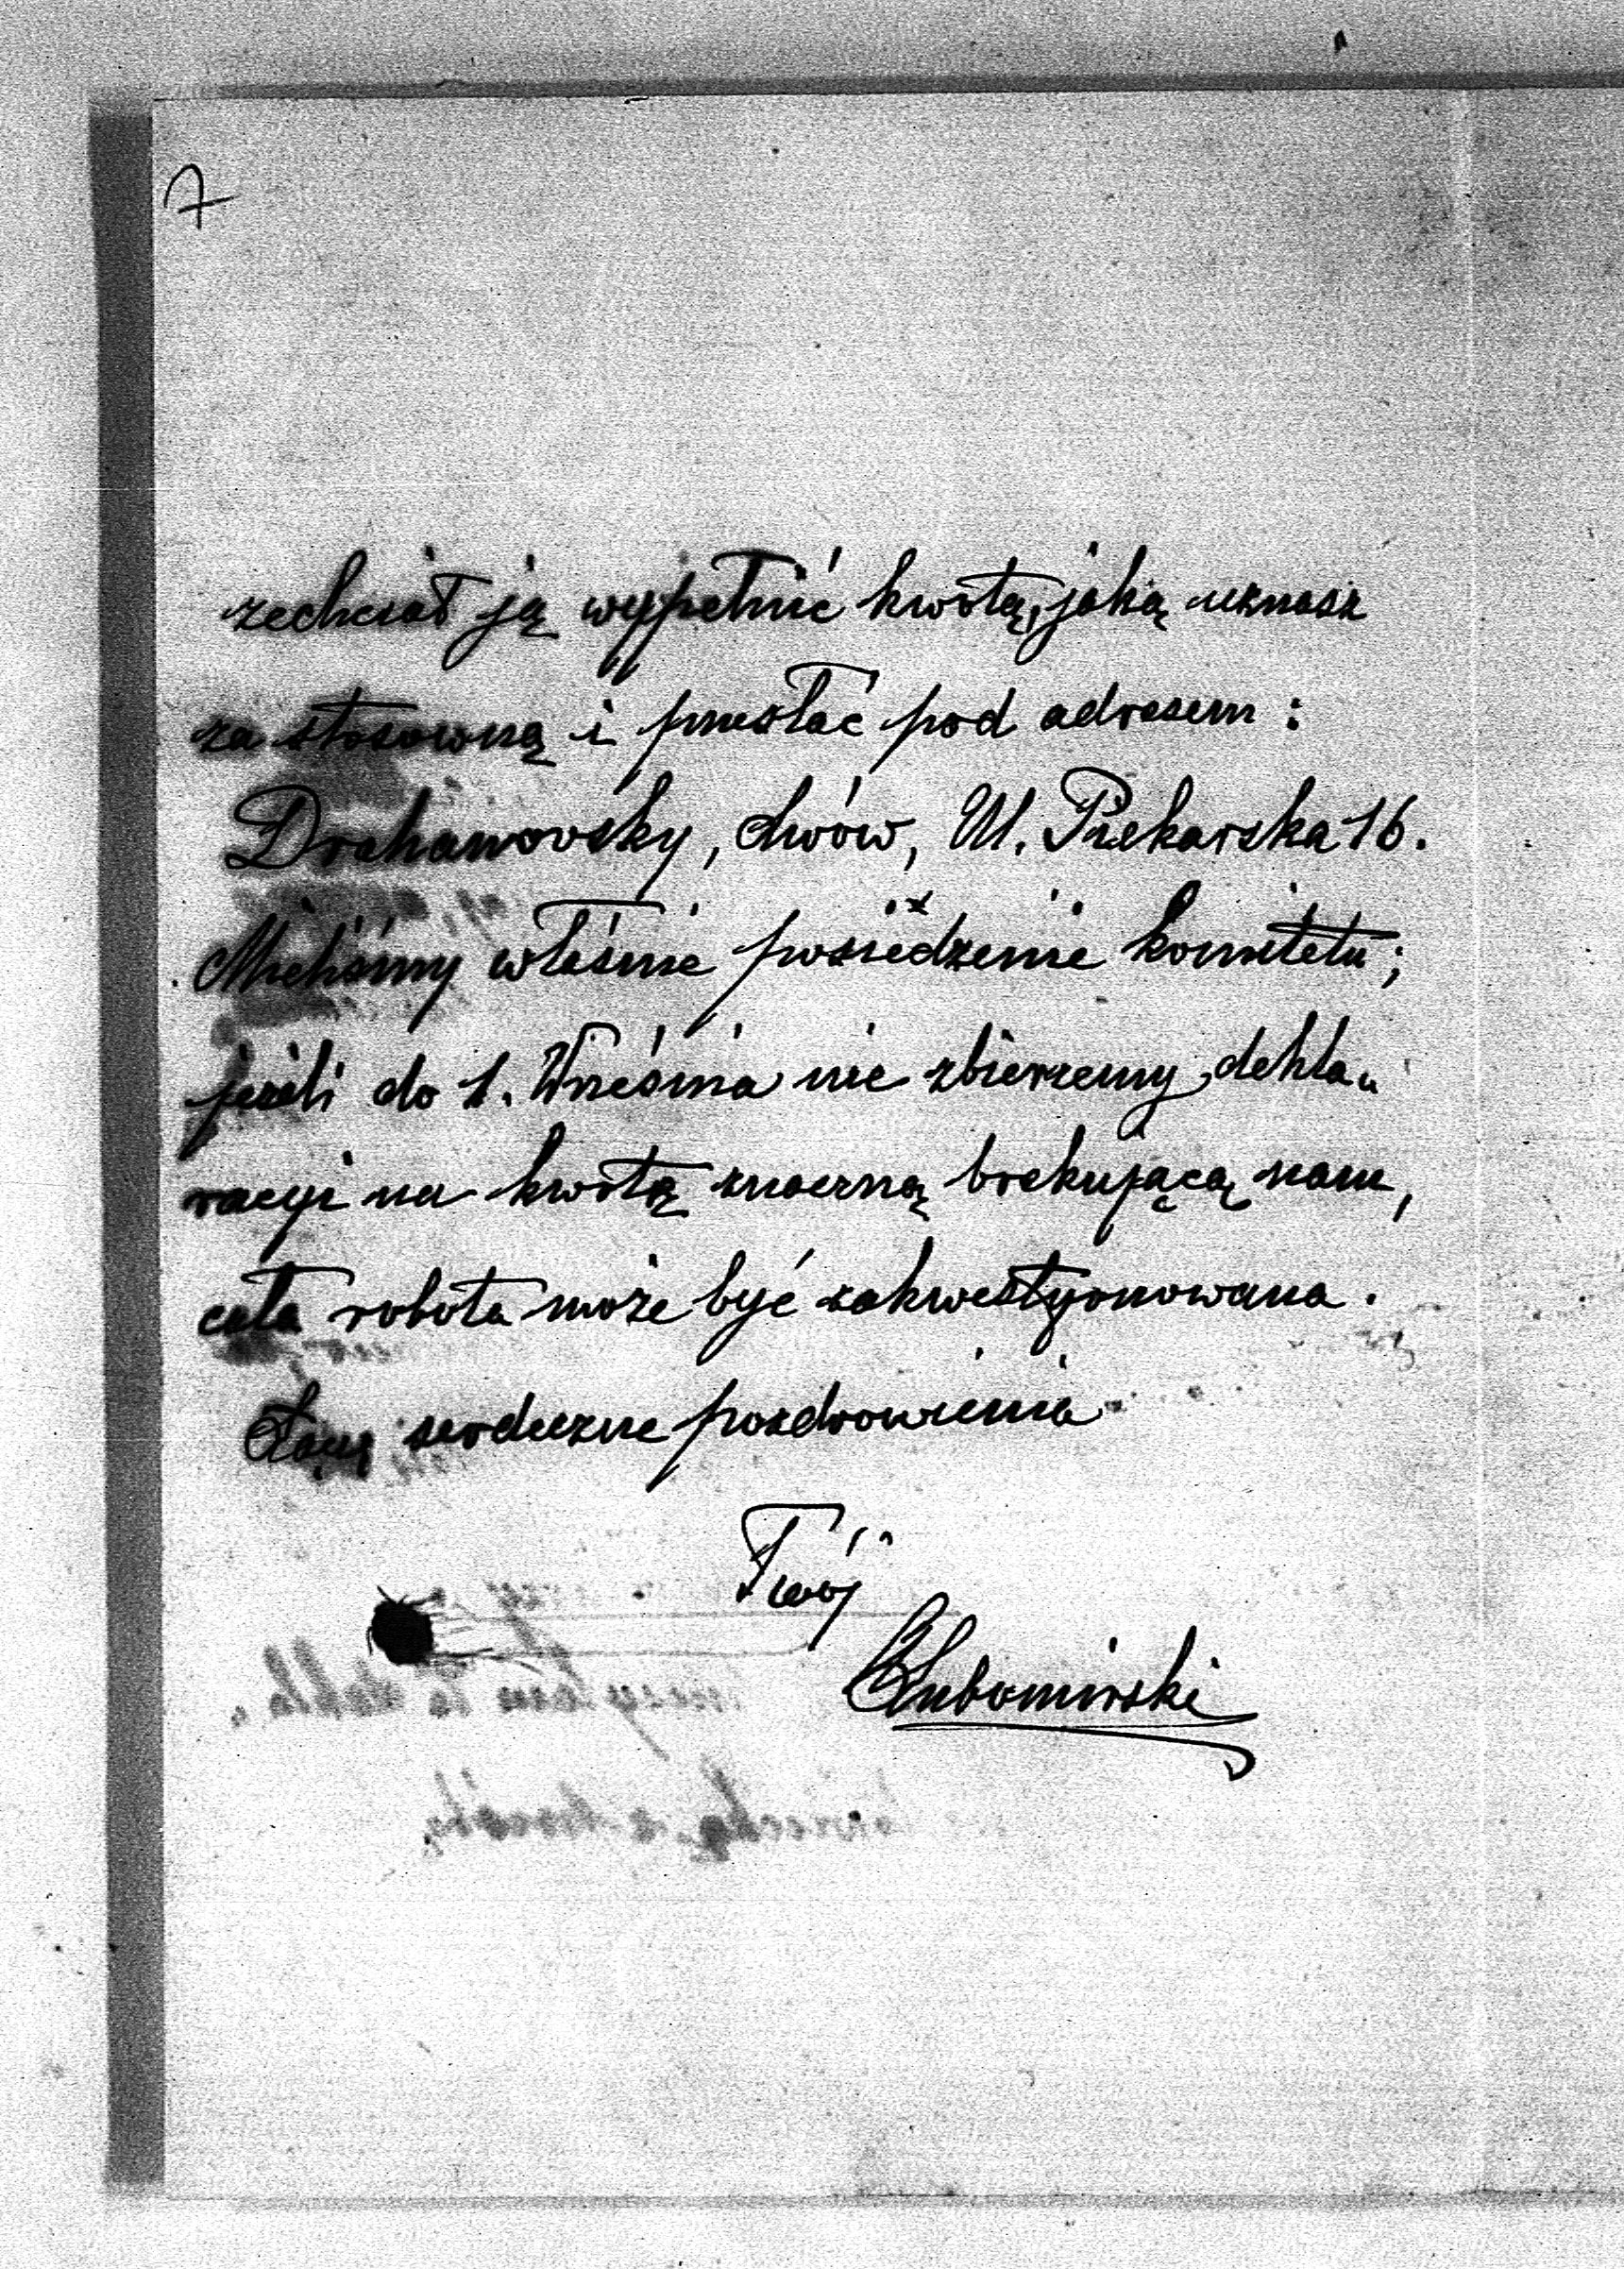 7
zechciał ją wypełnić kwotą, jaką uznasz
za stosowną i przesłać pod adresem:
Drohanowsky, Lwów, Ul. Piekarska 16.
Mieliśmy właśnie posiedzenie komitetu;
jeżeli do 1. Września nie zbierzemy dekla„
racyi na kwotę znaczną brakującą nam,
cała robota może być zakwestyonowana.
Łączę serdeczne pozdrowienia
Twój
Lubomirski